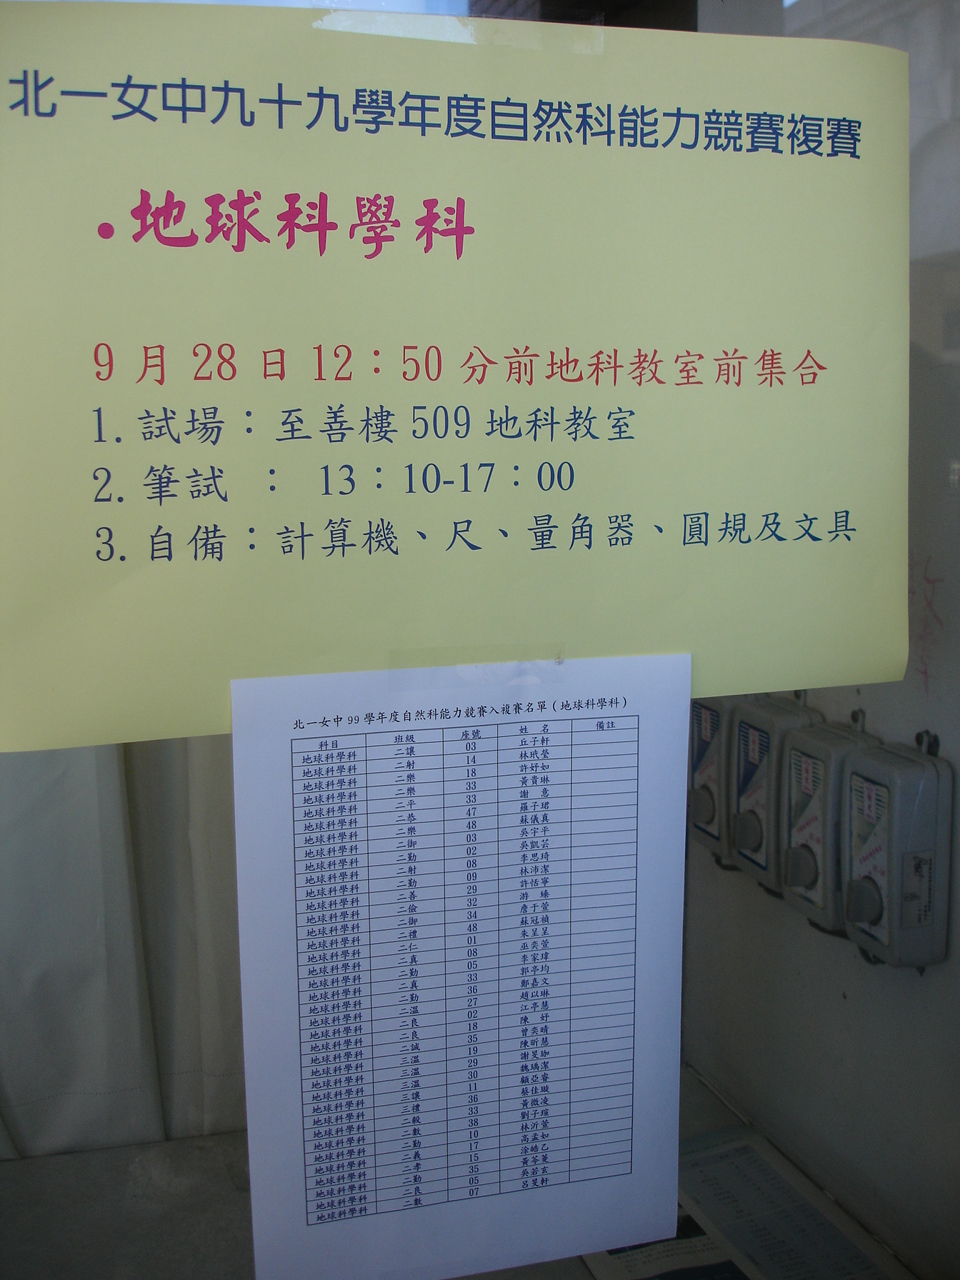 北一女中九十九學年度自然科能力競賽複賽
•地球科學科
9月28日12：50分前地科教室前集合
1.試場：至善樓509地科教室
2.筆試 ： 13：10-17：00
3.自備：計算機、尺、量角器、圓規及文具
北一女中99學年度自然科能力競賽入複賽名單（地球科學科）
科目 班級 座號 姓 名 備註
地球科學科 二讓 03 丘子軒
地球科學科 二射 14 林珮瑩
地球科學科 二樂 18 許妤如
地球科學科 二樂 33 黃貴琳
地球科學科 二平 33 謝 意
地球科學科 二恭 47 羅子珺
地球科學科 二樂 48 蘇儀真
地球科學科 二御 03 吳宇平
地球科學科 二勤 02 吳凱芸
地球科學科 二射 08 李思琦
地球科學科 二勤 09 林沛潔
地球科學科 二善 29 許恬寧
地球科學科 二儉 32 游 臻
地球科學科 二御 34 詹于萱
地球科學科 二禮 48 蘇冠禎
地球科學科 二仁 01 朱呈呈
地球科學科 二真 08 巫奕萱
地球科學科 二勤 05 李家瑋
地球科學科 二真 33 郭亭均
地球科學科 二勤 36 鄭嘉文
地球科學科 二溫 27 趙以琳
地球科學科 二良 02 江亭慧
地球科學科 二良 18 陳 妤
地球科學科 二誠 35 曾奕晴
地球科學科 三溫 19 陳昕慧
地球科學科 三溫 29 謝旻珈
地球科學科 三溫 30 魏瑀潔
地球科學科 三讓 11 顧亞睿
地球科學科 三禮 36 蔡佳璇
地球科學科 二毅 33 黃微凌
地球科學科 二數 38 劉子瑄
地球科學科 二勤 10 林沂萱
地球科學科 二義 17 高孟如
地球科學科 二孝 15 涂皓乙
地球科學科 二勤 35 黃苓菱
地球科學科 二良 05 吳若玄
地球科學科 二數 07 呂旻軒